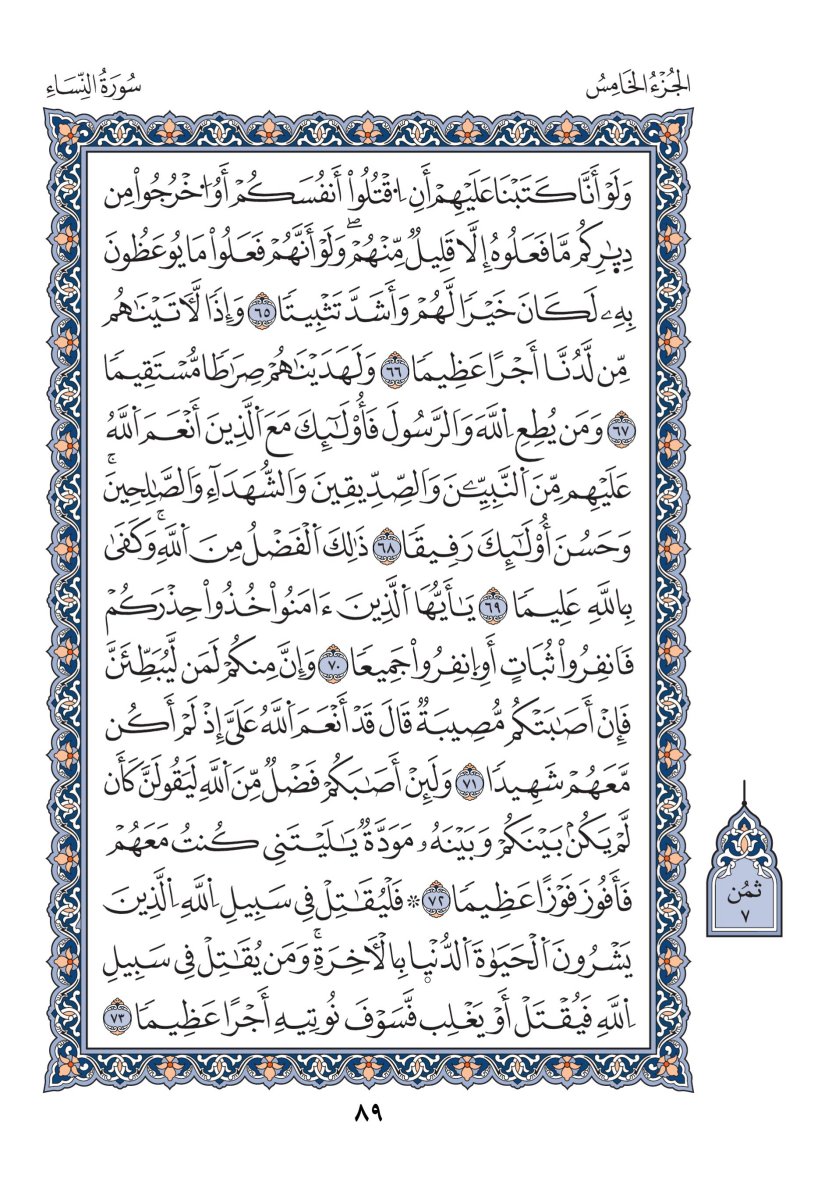 الجُزْءُ الخَامِسُ
سُورَةُ النِّسَاءِ
وَلَوْ أَنَّا كَتَبْنَا عَلَيْهِمْ أَنِ اُ۟قْتُلُوٓا۟ أَنفُسَكُمْ أَوُ اُ۟خْرُجُوا۟ مِن
دِيٰ۪رِكُم مَّا فَعَلُوهُ إِلَّا قَلِيلٌ مِّنْهُمْۖ وَلَوْ أَنَّهُمْ فَعَلُوا۟ مَا يُوعَظُونَ
بِهِۦ لَكَانَ خَيْرًا لَّهُمْ وَأَشَدَّ تَثْبِيتًا ٦٥ وَإِذًا لَّأٓتَيْنَٰهُم
مِّن لَّدُنَّا أَجْرًا عَظِيمًا ٦٦ وَلَهَدَيْنَٰهُمْ صِرَٰطًا مُّسْتَقِيمًا
٦٧ وَمَن يُطِعِ اِ۬للَّهَ وَالرَّسُولَ فَأُو۟لَٰٓئِكَ مَعَ اَ۬لَّذِينَ أَنْعَمَ اَ۬للَّهُ
عَلَيْهِم مِّنَ اَ۬لنَّبِيِّـۧنَ وَالصِّدِّيقِينَ وَالشُّهَدَآءِ وَالصَّٰلِحِينَۚ
وَحَسُنَ أُو۟لَٰٓئِكَ رَفِيقًا ٦٨ ذَٰلِكَ اَ۬لْفَضْلُ مِنَ اَ۬للَّهِۚ وَكَفَىٰ
بِاللَّهِ عَلِيمًا ٦٩ يَٰأَيُّهَا اَ۬لَّذِينَ ءَامَنُوا۟ خُذُوا۟ حِذْرَكُمْ
فَانفِرُوا۟ ثُبَاتٍ أَوِ اِ۪نفِرُوا۟ جَمِيعًا ٧٠ وَإِنَّ مِنكُمْ لَمَن لَّيُبَطِّئَنَّ
فَإِنْ أَصَٰبَتْكُم مُّصِيبَةٌ قَالَ قَدْ أَنْعَمَ اَ۬للَّهُ عَلَيَّ إِذْ لَمْ أَكُن
مَّعَهُمْ شَهِيدًا ٧١ وَلَئِنْ أَصَٰبَكُمْ فَضْلٌ مِّنَ اَ۬للَّهِ لَيَقُولَنَّ كَأَن
لَّمْ يَكُنۢ بَيْنَكُمْ وَبَيْنَهُۥ مَوَدَّةٌ يَٰلَيْتَنِي كُنتُ مَعَهُمْ
فَأَفُوزَ فَوْزًا عَظِيمًا ٧٢ ۞ فَلْيُقَٰتِلْ فِي سَبِيلِ اِ۬للَّهِ اِ۬لَّذِينَ
يَشْرُونَ اَ۬لْحَيَوٰةَ اَ۬لدُّنْي۪ا بِالْأٓخِرَةِۚ وَمَن يُقَٰتِلْ فِي سَبِيلِ
اِ۬للَّهِ فَيُقْتَلْ أَوْ يَغْلِب فَّسَوْفَ نُوتِيهِ أَجْرًا عَظِيمًا ٧٣
ثُمُن
٧
٨٩